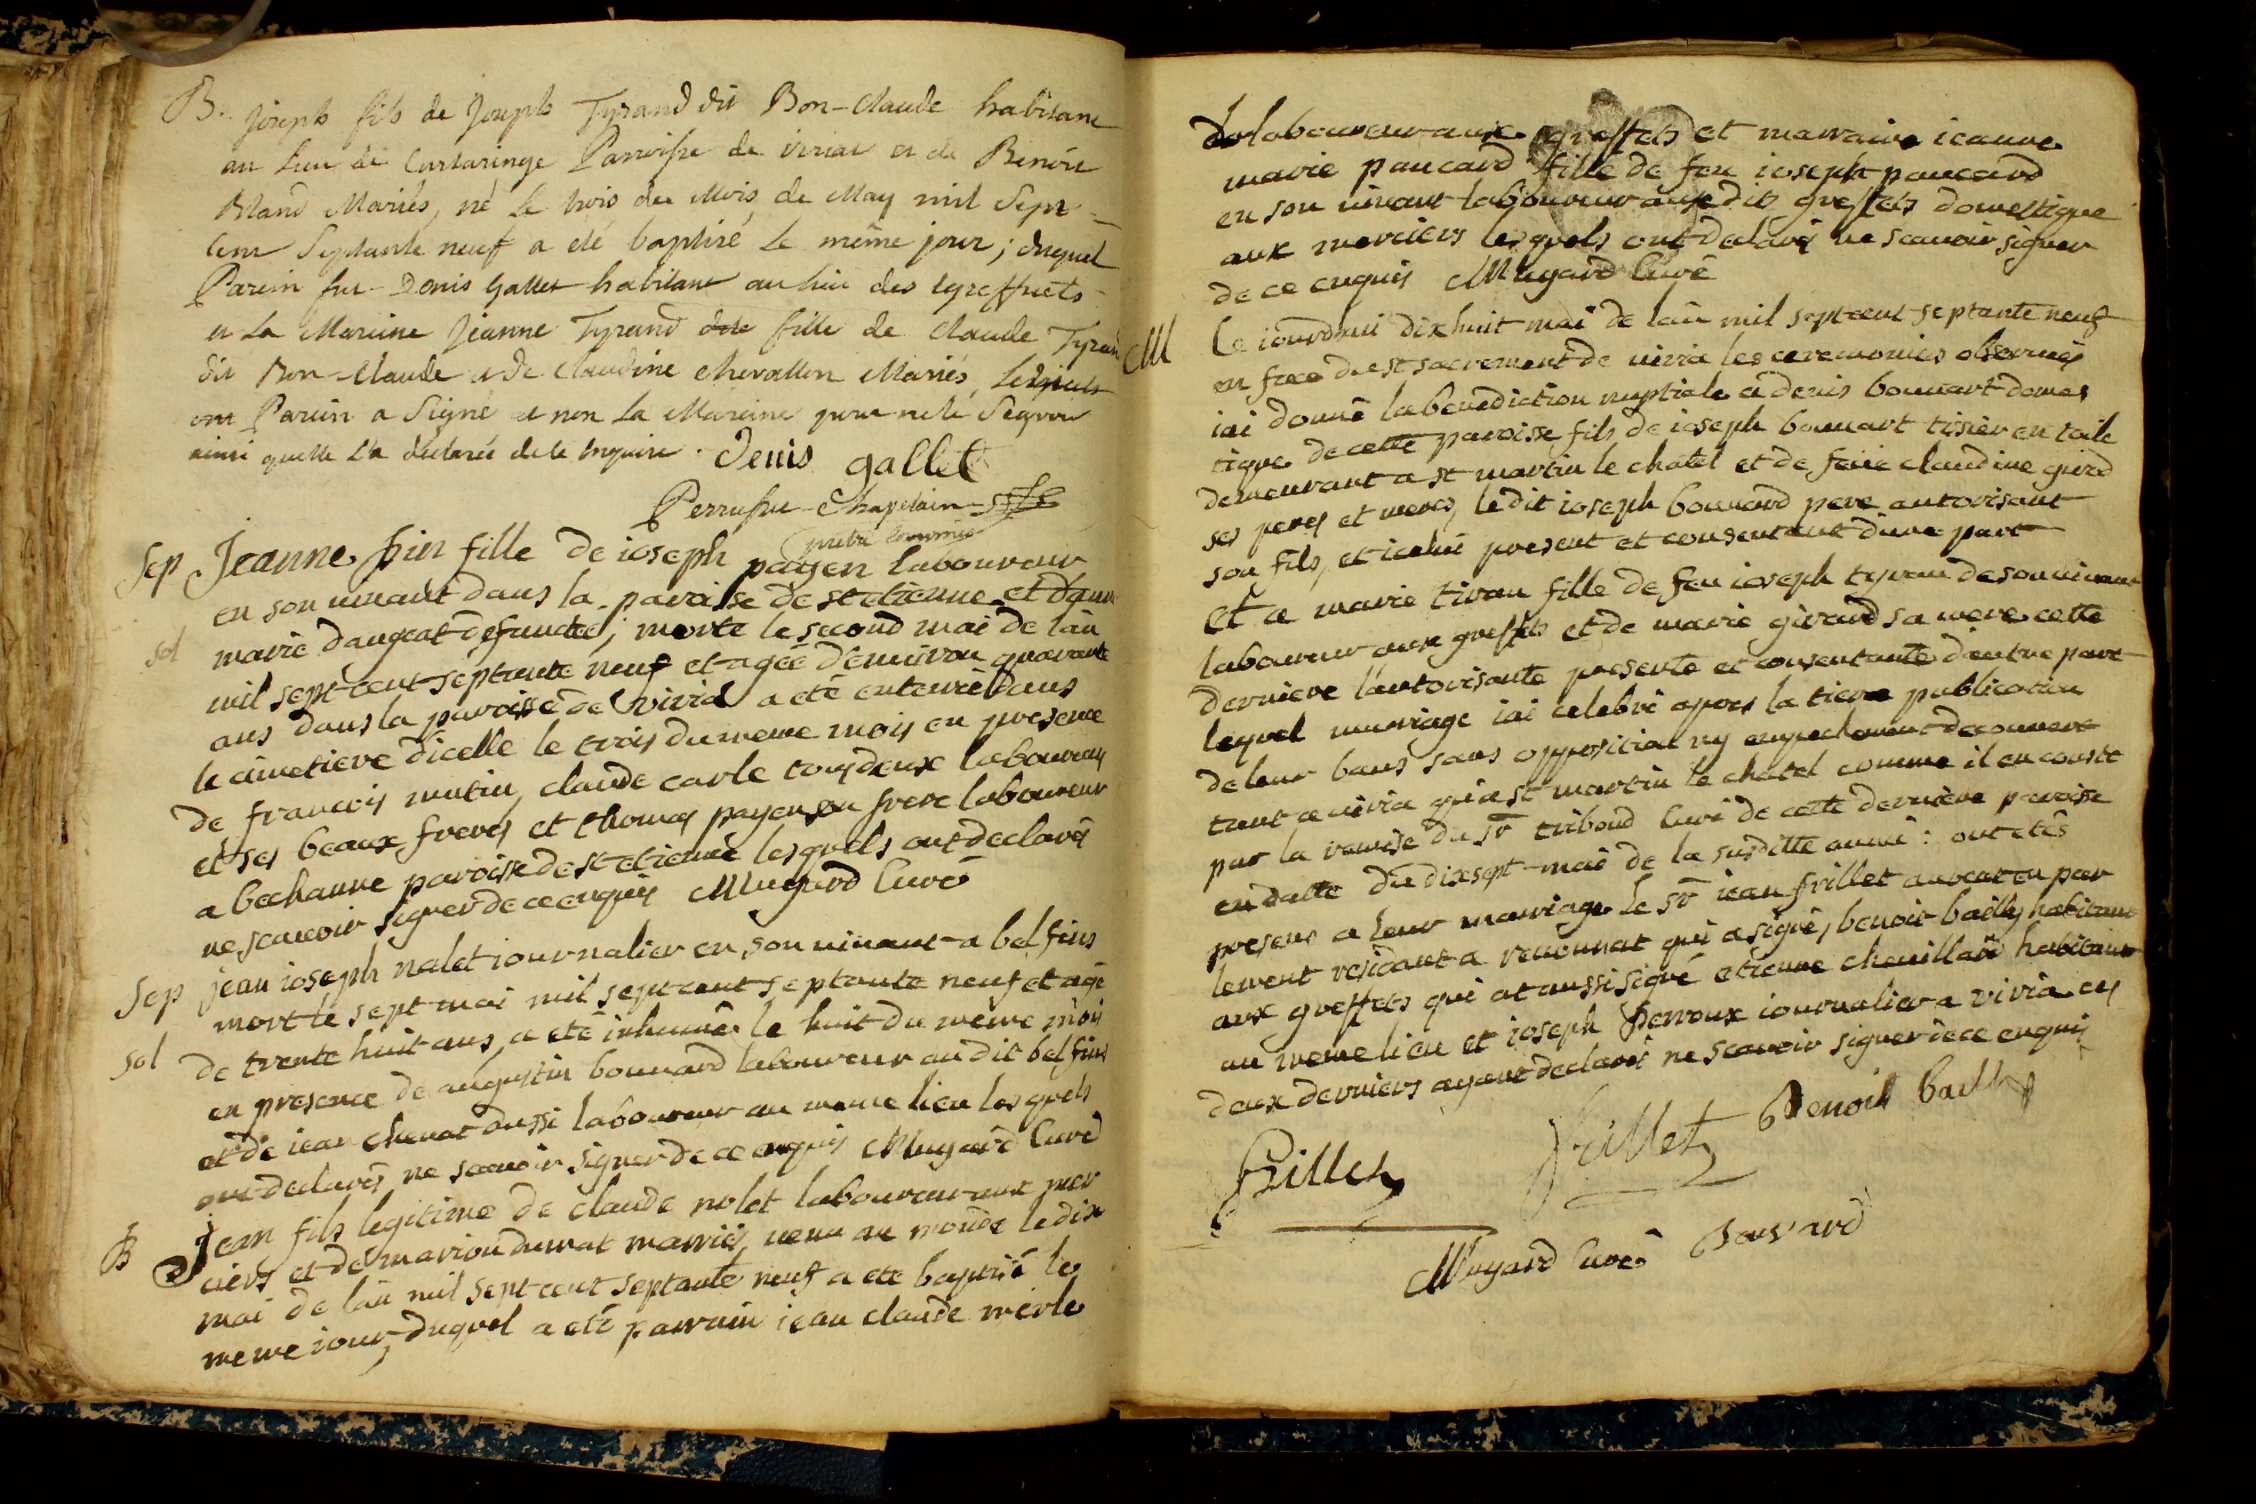 B. Joseph fils de Joseph Tyrand dit Bon-Claude habitant
au Lieu de Curtaringe Parroisse de viriat et de Benoite
Bland Mariés, né le trois du Mois de May mil Sept-
Cent Septante neuf a eté baptisé le même jour; duquel
Parein fut Denis Gallet habitant au lieu des Greffets
et La Mareine Jeanne Tyrand fille de Claude Tyrand
dit Bon-Claude et De Claudine Chevallon Mariés,
Parein a Signé et non La Mareine pour ne le Sçavoir
ainsi quelle l'a declarée de le enquise. Denis gallet
Perruset Chapelain
pretre commis
Sep Jeanne fille de ioseph payen laboureur
en son vivant dans la paroisse de st etienne et d'anne
sol marie daugeat defuncte; morte le second mai de l'an
mil sept cent septante neuf et agée d'environ quarante
ans dans la paroisse de viria a eté enterrée dans
le cimetiere d'icelle le trois du meme mois en presence
de francois mutin, claude carle tous deux laboureurs
et ses beaux freres et thomas payen son frere laboureur
a bechanne paroisse de st etienne lesquels ont declarés
ne scavoir signer de ce enquis Mugard Curé
Sep jean ioseph nalet iournalier en son vivant a bel fins
mort le sept mai mil sept cent septante neuf et agé
sol de trente huit ans, a eté inhumé le huit du même mois
en presence de augustin bouvard laboureur au dit bel fins
et de iean chenat aussi laboureur au meme lieu lesquels
ont declarés ne scavoir signer de ce enquis Mugard Curé
B Jean fils legitime de claude nolet laboureur aux mer
ciers et de marion durnat marriés, venu au monde le dix
mai de l'an mil sept cent septante neuf a eté baptisé le
meme iour, duquel a eté parrain iean claude merle
laboureur aux greffets et marraine ieanne
marie paucard fille de feu ioseph paucard
en son vivant laboureur auxdits greffets domestique
aux merciers lesquels ont declarés ne scavoir signer
de ce enquis Mugard Curé
M Ce iourdhui dix huit mai de l'an mil sept cent septante neuf
en face du st sacrement de viria les ceremonies observées
iai donné la benediction nuptiale a denis bouvart domes
tique de cette paroisse fils de ioseph bouvart tisier en toile
demeurant a st martin le chatel et de feüe claudine
ses peres et meres, ledit ioseph bouvard pere autorisant
son fils, et icelui present et consentant d'une part
et a marie tiran fille de feu ioseph tyran de son vivant
laboureur aux greffets et de marie girard sa mere cette
derniere l'autorisante presente et consentante d'autre part
lequel mariage iai celebré apres la tierce publication
de leur bans sans opposition ny empechement decouvert
tant a viria qu'a st martin le chatel comme il en conste
par la remise du sr tribond Curé de cette derniere paroisse
en datte du dixsept mai de la susditte année: ont etés
presens a leur marriage le sr iean frillet avocat en par
lement residant a revonnat qui a signé, benoit bailly habitant
aux greffets qui at aussi signé etienne chevillard habitant
au meme lieu et ioseph Perroux iournalier a viria ces
deux derniers ayant declarés ne scavoir signer de ce enquis
Frillet frillet Benoit bailly
Mugard Curé Bouvard